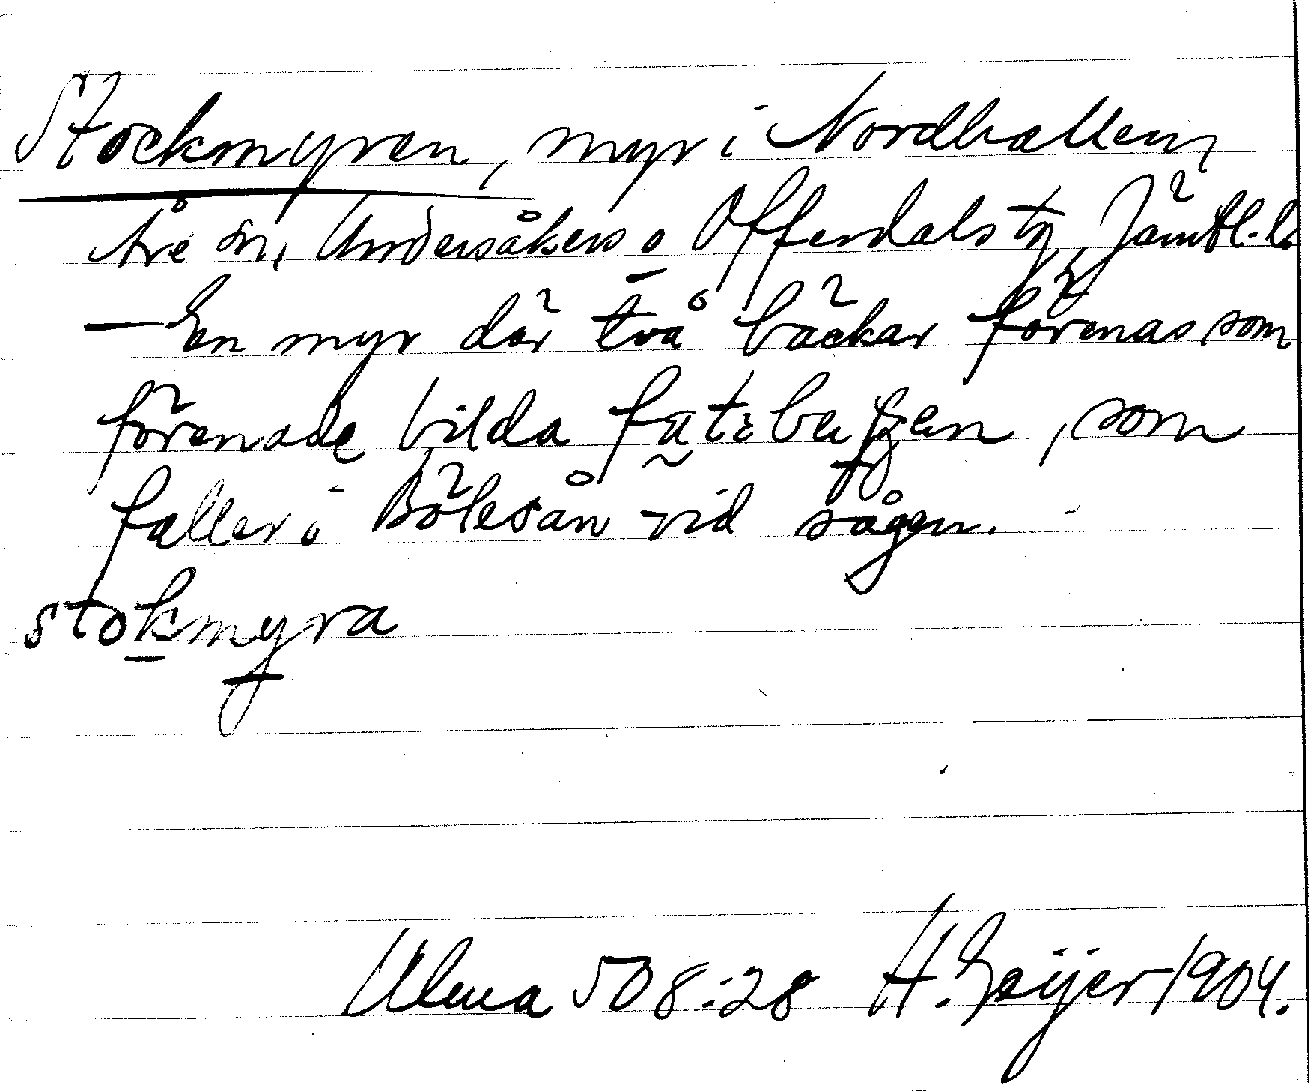 Stockmyren, myr i Nordhallen,
Åre sn, Undersåkers o Offerdals tg, Jämtl. l.
— En myr där två bäckar förenas som
förenade bilda som
faller i Bölesån vid sågen.
stokmyra
Ulma 508:28 H. Geijer 1904.